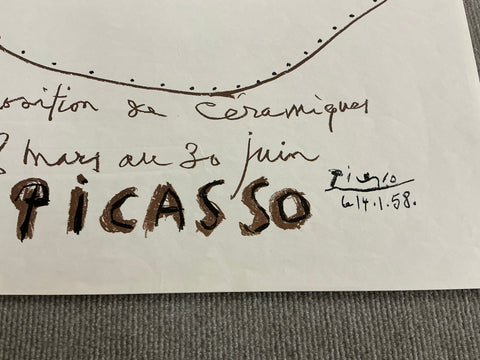 osition de Céramiques
8 mars au 30 juin
PiCASSO
Picasso
le 14.1.58.